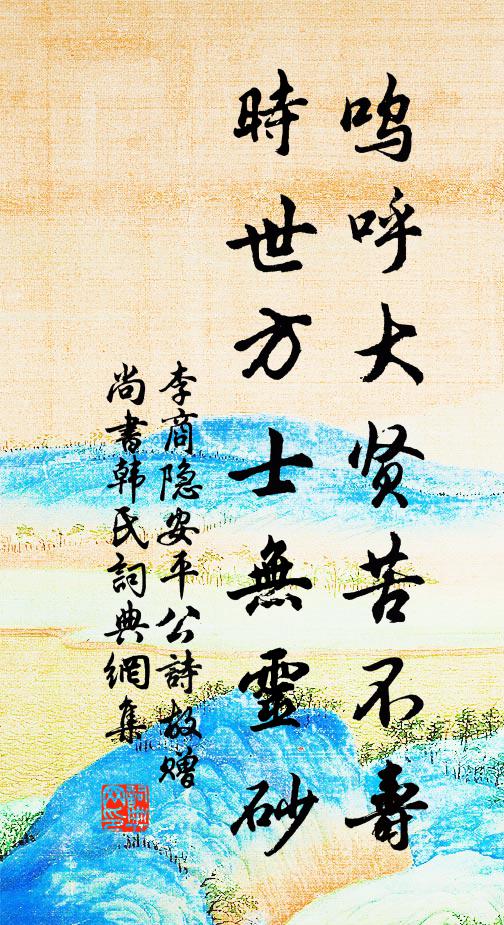 呜呼大贤苦不壽
時世方士無靈砂
李商隐安平公詩故赠
尚書韩氏詞典網集